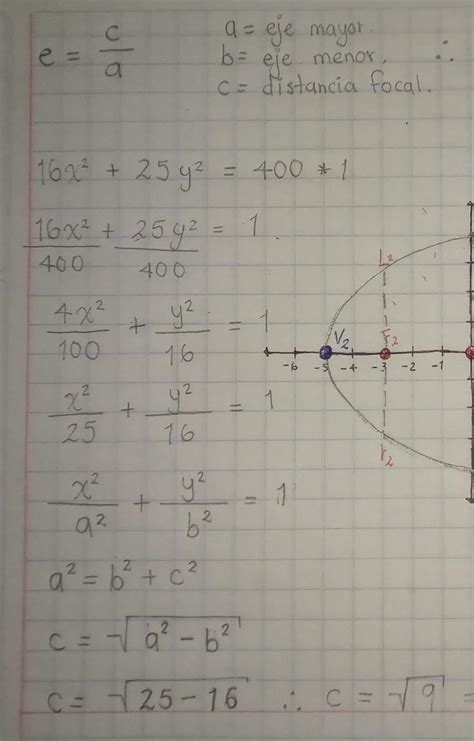 e = c/a
a = eje mayor.
b = eje menor. ∴
c = distancia focal.
16x² + 25y² = 400 * 1
16x²/400 + 25y²/400 = 1
4x²/100 + y²/16 = 1
x²/25 + y²/16 = 1
x²/a² + y²/b² = 1
a² = b² + c²
c = √a² - b²
c = √25 - 16 ∴ c = √9 =
L₂
V₂ F₂
-6 -5 -4 -3 -2 -1
r₂